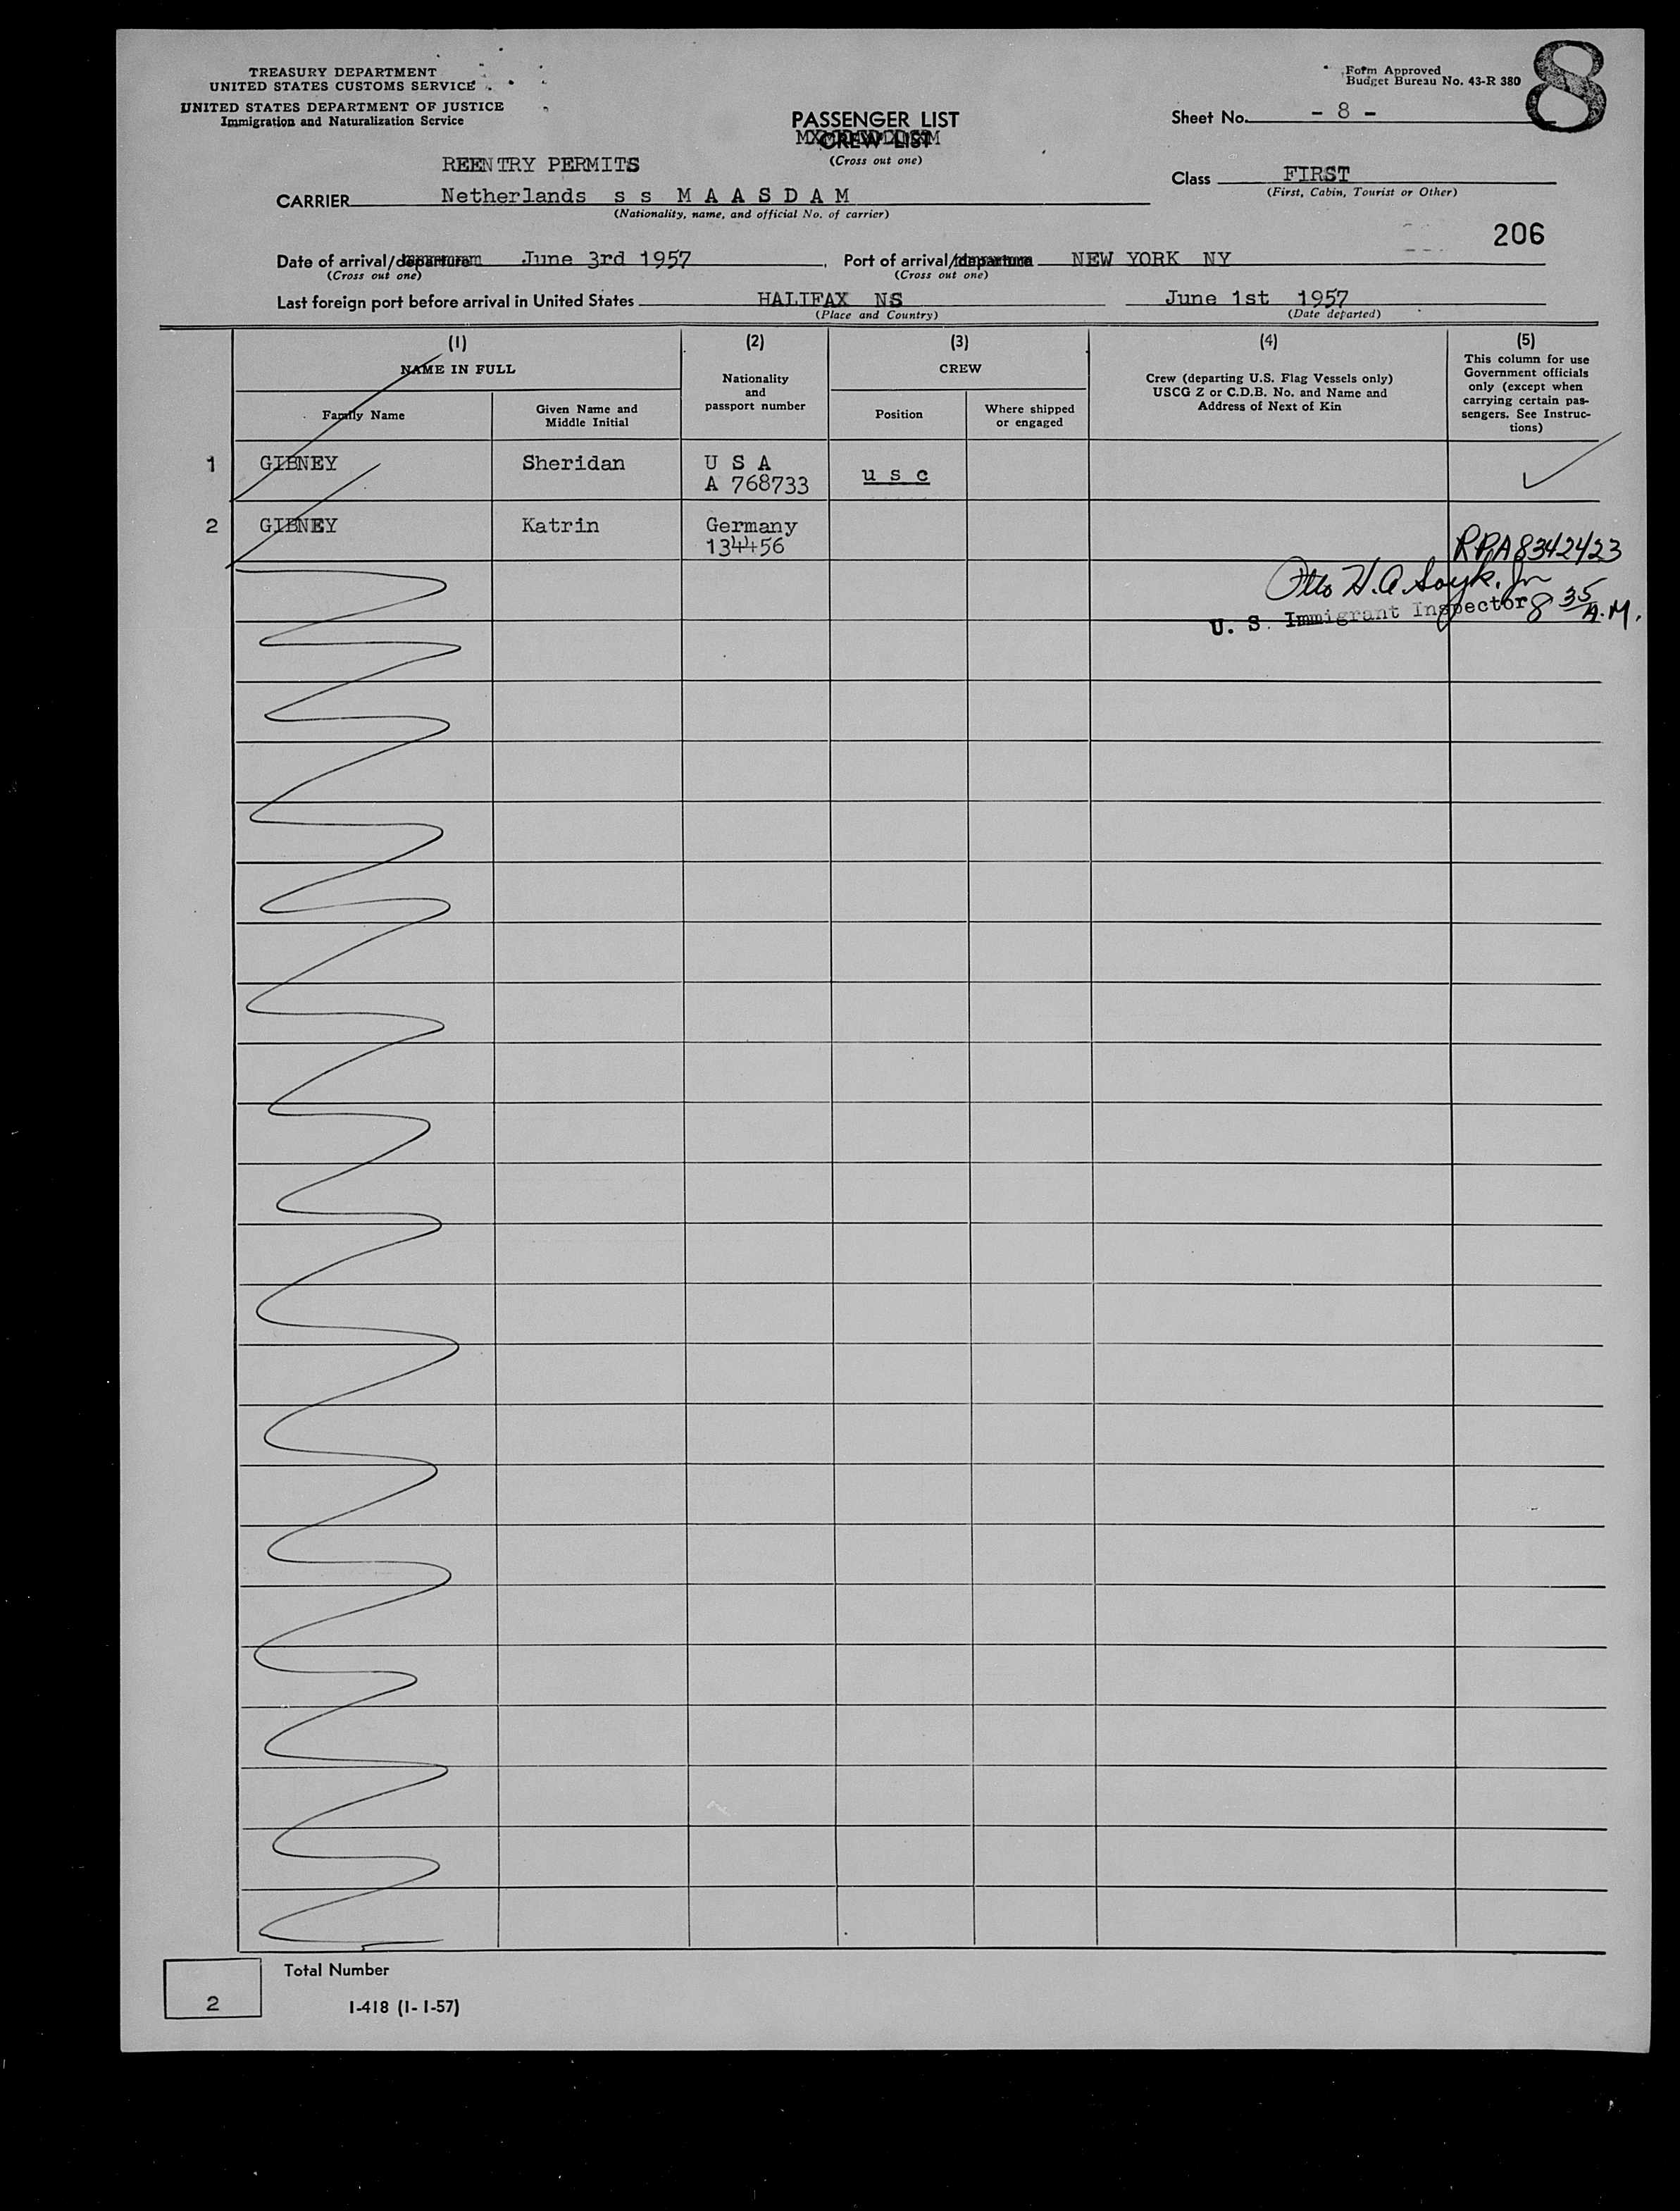 TREASURY DEPARTMENT
UNITED STATES CUSTOMS SERVICE
UNITED STATES DEPARTMENT OF JUSTICE
Immigration and Naturalization Service
Form Approved
Budget Bureau No. 43-R 380
8
PASSENGER LIST
CREW LIST
(Cross out one)
Sheet No. - 8 -
REENTRY PERMITS
Class FIRST
(First, Cabin, Tourist or Other)
CARRIER Netherlands s s M A A S D A M
(Nationality, name, and official No. of carrier)
206
Date of arrival/departure June 3rd 1957, Port of arrival/departure NEW YORK NY
(Cross out one) (Cross out one)
Last foreign port before arrival in United States HALIFAX NS June 1st 1957
(Place and Country) (Date departed)
(1) (2) (3) (4) (5)
NAME IN FULL
Family Name
Given Name and
Middle Initial
Nationality
and
passport number
CREW
Position
Where shipped
or engaged
Crew (departing U.S. Flag Vessels only)
USCG Z or C.D.B. No. and Name and
Address of Next of Kin
This column for use
Government officials
only (except when
carrying certain pas-
sengers. See Instruc-
tions)
1 GIBNEY Sheridan U S A u s c
A 768733
2 GIBNEY Katrin Germany
134456 RPA8342423
Otto H. A.
U. S. Immigrant Inspector 8 35 A.M.
Total Number
2
I-418 (1-1-57)